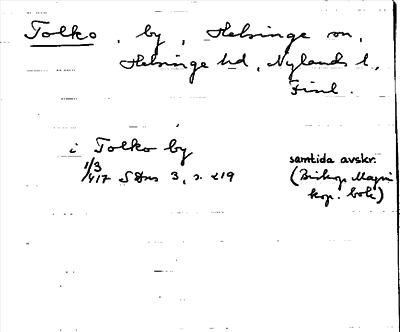 Tolko, by, Helsinge sn,
Helsinge hd, Nylands l,
Finl.
i Tolko by
1/3
1417 SDns 3, s. 219
samtida avskr.
(Biskop Magni
kop. bok)